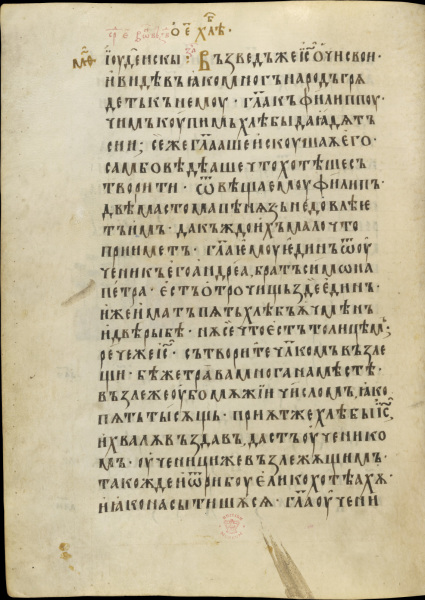 іоуде́искы · Възведъ же іс҃ ѻчи свои ·
и видѣвъ ꙗко многъ народъ грѧ
детъ къ немоу · гл҃а къ филиппоу ·
чимъ коупимъ хлѣбы да ꙗдѧтъ
сии ; се же гл҃аше искоушаѧ его ·
самъ бо вѣдѣаше что хотѣше съ
творити · ѿвѣща емоу филипъ ·
двѣма стома пѣнѧзь не довлѣе
тъ имъ · да къждо ихъ мало что
прииметъ · гл҃а емоу единъ ѿ оу
ченикъ его андреа, братъ симѡна
петра · естъ отрочищь зде единъ ·
иже иматъ пѧть хлѣбъ ѧчмѣнъ
и двѣ рыбѣ · нѫ се что естъ толицѣмъ ;
рече же іс҃ · сътворите чл҃комъ възле
щи · бѣ же трава многа на мѣстѣ ·
възлеже оубо мѫжїи числомъ, ꙗко
пѧть тысѫщь · приѧт же хлѣбы іс҃,
и хвалѫ въздавъ, дастъ оученико
мъ · оученици же възлежѧщимъ ·
такожде и ѿ рибоу елико хотѣахѫ ·
и ꙗко насытишѧсѧ · гл҃а оучени